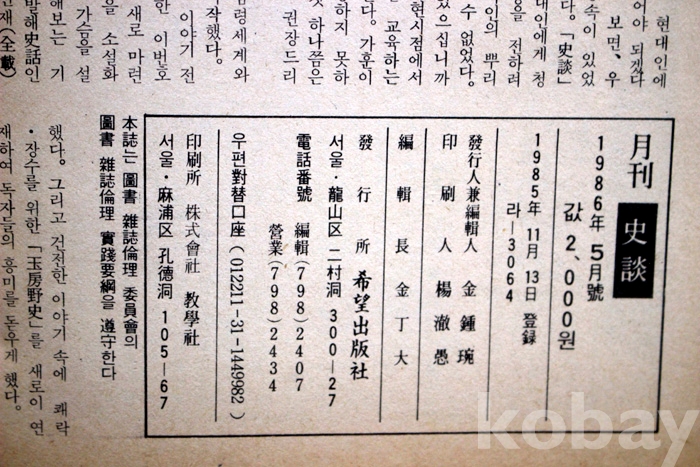 현대인에
어야 되겠다
보면, 우
속이 있었
다. 「史談」
대인에게 청
을 전하러
인의 뿌리
있으십니까
수 없었다.
현시점에서
교육하는
하지 못하
다. 가훈이
것 하나쯤은
권장드리
령세계와
작했다.
이야기 전
이번호
새로 마련
을 소설화
가슴을 설
해보는 기
발해史話인
재(全載)
月刊 史談
1986年 5月號
값 2,000원
라-3064
1985年 11月 13日 登録
發行人兼編輯人 金鍾琬
印刷人 楊澈愚
編輯長 金丁大
發行所 希望出版社
서울·龍山区 二村洞 300-27
電話番號 編輯(798)2407
營業(798)2434
우편對替口座(012211-31-1449982)
印刷所 株式會社 教學社
서울·麻浦区 孔德洞 105-67
本誌는 圖書 雜誌倫理 委員會의
圖書 雜誌倫理 實踐要綱을 遵守한다
했다. 그리고 건전한 이야기 속에 쾌락
·장수를 위한 「玉房野史」를 새로이 연
재하여 독자들의 흥미를 돋우게 했다.
kobay